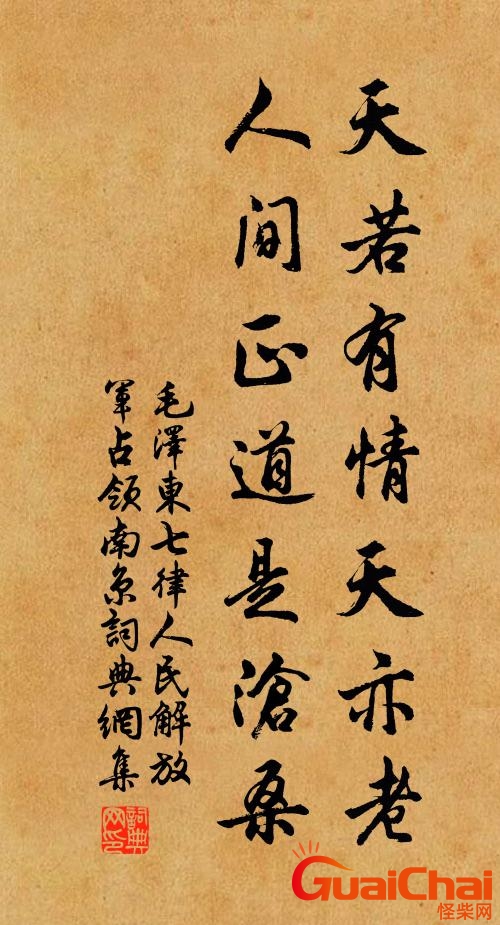 天若有情天亦老
人间正道是滄桑
毛澤東七律人民解放
軍占領南京詞典網集
詞典
网印
GuaiChai
怪柴网